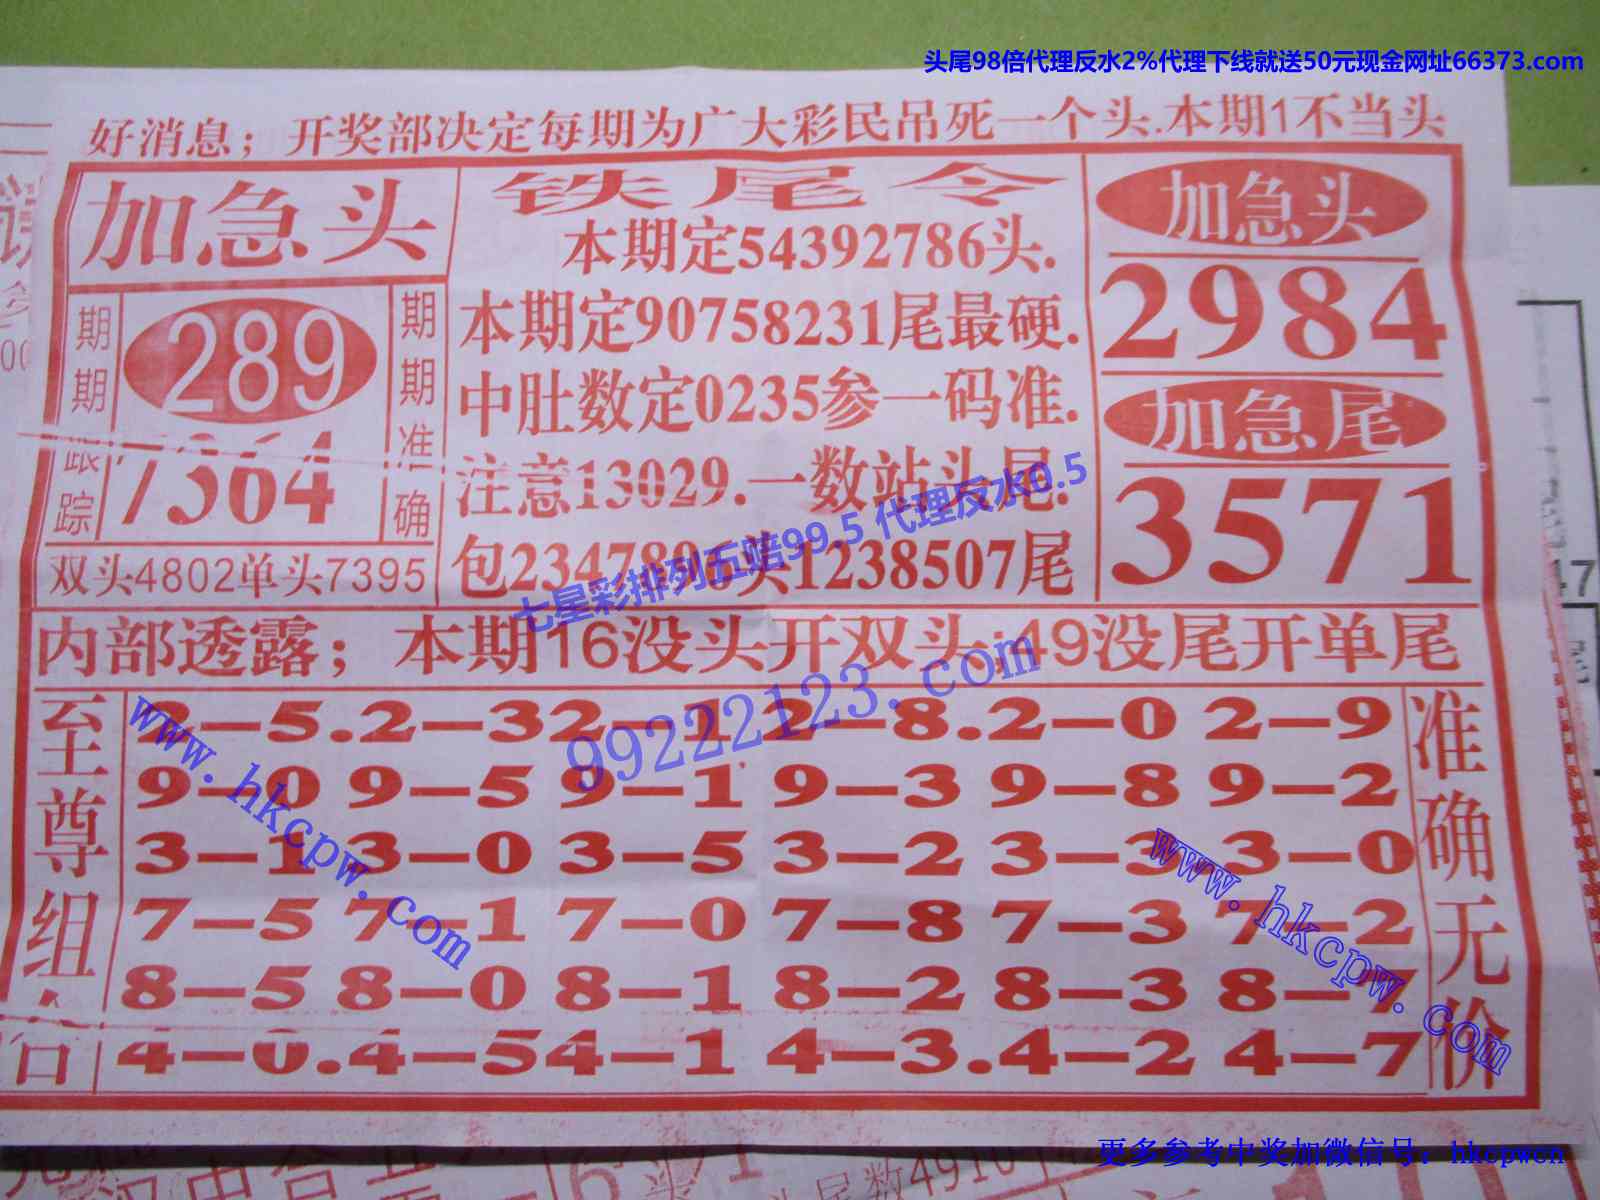 头尾98倍代理反水2%代理下线就送50元现金网址66373.com
好消息；开奖部决定每期为广大彩民吊死一个头.本期1不当头
加急头
期期跟踪
289
7364
期期准确
双头4802单头7395
铁尾令
本期定54392786头.
本期定90758231尾最硬.
中肚数定0235参一码准.
注意13029.一数站头尾.
包2347896头1238507尾
加急头
2984
加急尾
3571
七星彩排列五赔99.5 代理反水0.5
内部透露；本期16没头开双头;49没尾开单尾
99222123.com
至尊组合
2—5.2—32—1 2—8.2—0 2—9
9—0 9—5 9—1 9—3 9—8 9—2
3—1 3—0 3—5 3—2 3—3 3—0
7—5 7—1 7—0 7—8 7—3 7—2
8—5 8—0 8—1 8—2 8—3 8—7
4—0.4—54—1 4—3.4—2 4—7
准确无价
www.hkcpw.com
www.hkcpw.com
更多参考中奖加微信号：hkcpwcn
头尾数4910